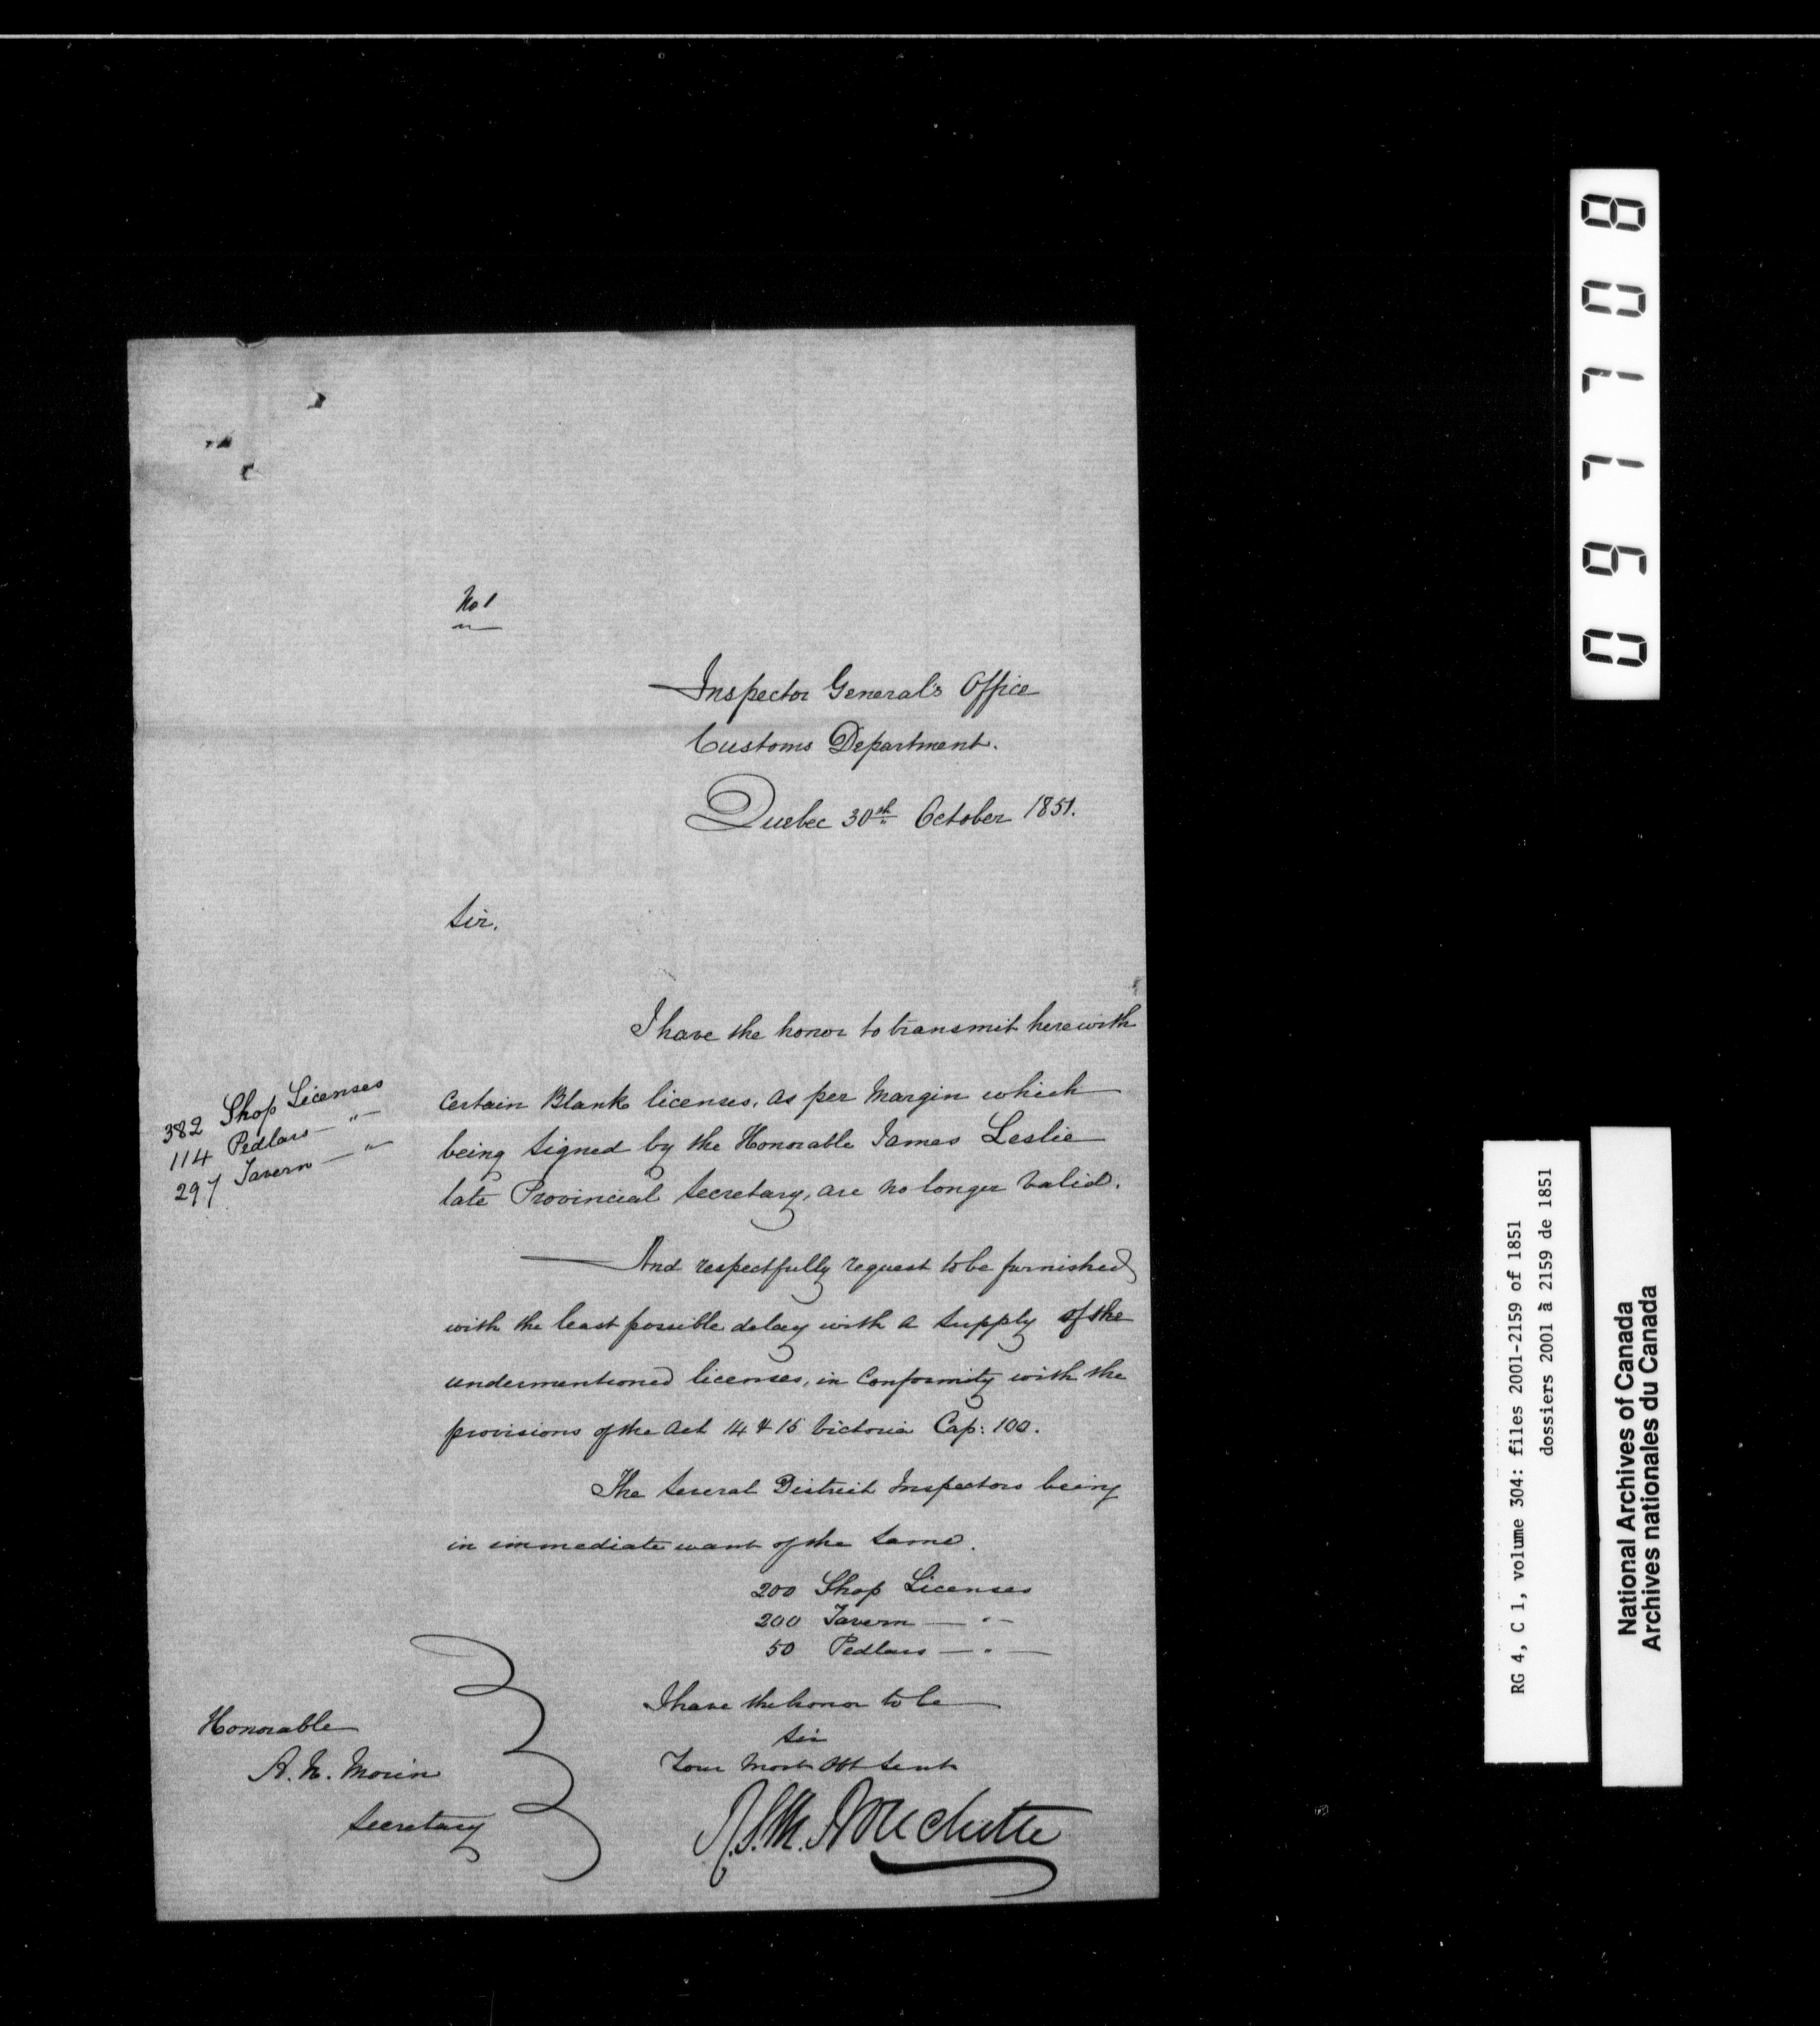 No 1
Inspector General's Office
Customs Department.
Quebec 30th October 1851.
Sir,
I have the honor to transmit herewith
382 Shop Licenses
114 Pedlars — " —
297 Tavern — " —
Certain Blank licenses, as per Margin which
being signed by the Honorable James Leslie
late Provincial Secretary, are no longer valid.
— And respectfully request to be furnished
with the least possible delay with a supply of the
undermentioned licenses, in Conformity with the
provisions of the Act 14 & 15 Victoria Cap: 100.
The several District Inspectors being
in immediate want of the same.
200 Shop Licenses
200 Tavern — " —
50 Pedlars — " —
I have the honor to be
Sir
Your Most Obt Servt
Honorable
A. N. Morin
Secretary
R.S.M. Bouchette
097708
RG 4, C 1, volume 304: files 2001-2159 of 1851
dossiers 2001 à 2159 de 1851
National Archives of Canada
Archives nationales du Canada